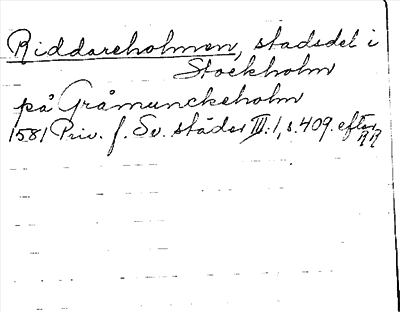 Riddareholmen, stadsdel i
Stockholm
på Gråmunckeholm
1581 Priv. f. Sv. städer III:1, s. 409. efter RR